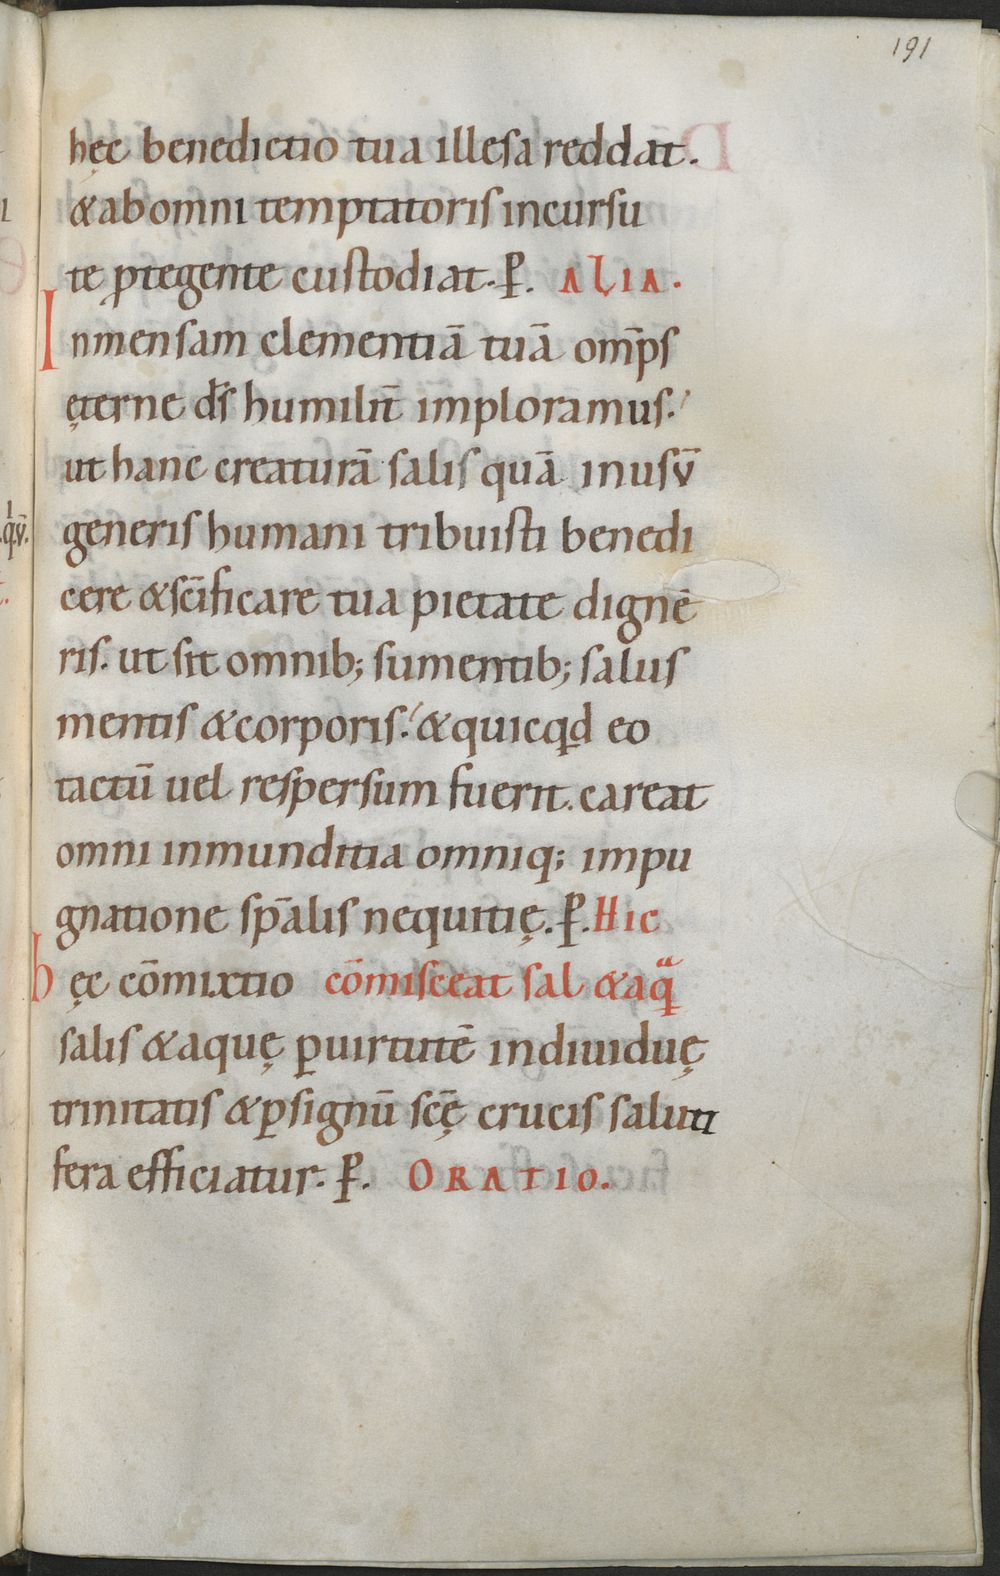 191
hęc benedictio tua illesa reddat.
& ab omni temptatoris incursu
te ꝓtegente custodiat. P̄. ALIA.
Inmensam clementiā tuā om̄ps
ęterne d̄s humilit̄ imploramus.
ut hanc creaturā salis quā in usv̄
generis humani tribuisti benedi
cere & sc̄ificare tua pietate dignē
ris. ut sit omnib; sumentib; salus
mentis & corporis. & quicqd eo
tactū uel respersum fuerit. careat
omni inmunditia omniq; impu
gnatione sp̄alis nequitię. P̄. Hic
hęc cōmixtio cōmisceat sal & aq̄
salis & aquę ꝑ uirtutē indiuiduę
trinitatis & ꝑ signū sc̄ę crucis saluti
fera efficiatur. P̄. ORATIO.